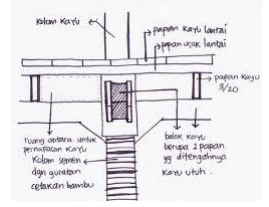 Kolom Kayu
papan kayu lantai
papan usuk lantai
papan kayu
3/20
ruang antara untuk
pernafasan kayu
Kolom semen
dgn guratan
cetakan bambu
balok kayu
berupa 2 papan
yg ditengahnya
kayu utuh.